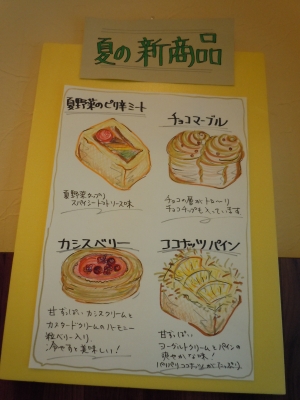 夏の新商品
夏野菜のピリ辛ミート
夏野菜たっぷり
スパイシーなトマトソース味
チョコマーブル
チョコの層がトローリ
チョコチップも入ってます
カシスベリー
甘ずっぱいカシスクリームと
カスタードクリームのハーモニー
粒ベリー入り
冷やすと美味しい!
ココナッツパイン
甘ずっぱい
ヨーグルトクリームとパインの
爽やかな味!
パリパリココナッツ